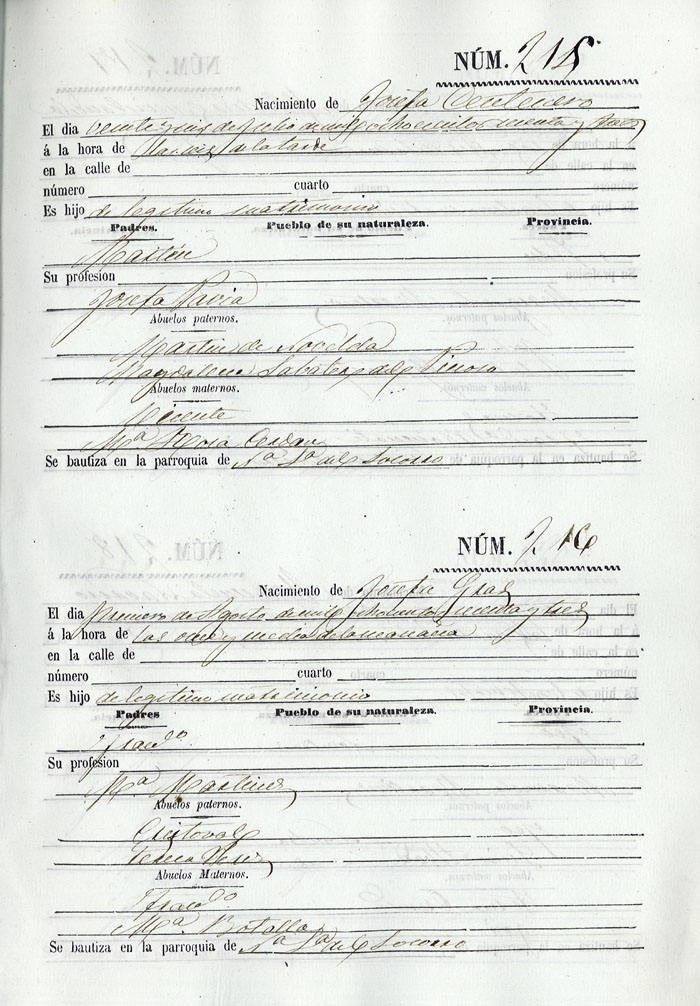 NÚM. 215
Nacimiento de Josefa Centenero
El dia veinte y seis de Julio de mil ochocientos noventa y tres
á la hora de las seis de la tarde
en la calle de
número cuarto
Es hijo de legitimo matrimonio
Padres. Pueblo de su naturaleza. Provincia.
Martin
Su profesion
Josefa Pavia
Abuelos paternos.
Martin de Novelda
Magdalena Sabater del Pinoso
Abuelos maternos.
Vicente
Mª Rosa Cerdan
Se bautiza en la parroquia de Nª Sª del Socorro
NÚM. 216
Nacimiento de Josefa Gras
El dia primero de Agosto de mil ochocientos noventa y tres
á la hora de las ocho y media de la mañana
en la calle de
número cuarto
Es hijo de legitimo matrimonio
Padres Pueblo de su naturaleza. Provincia.
Francº
Su profesion
Mª Martinez
Abuelos paternos.
Cristoval
Teresa
Abuelos Maternos.
Francº
Mª Botella
Se bautiza en la parroquia de Nª Sª del Socorro